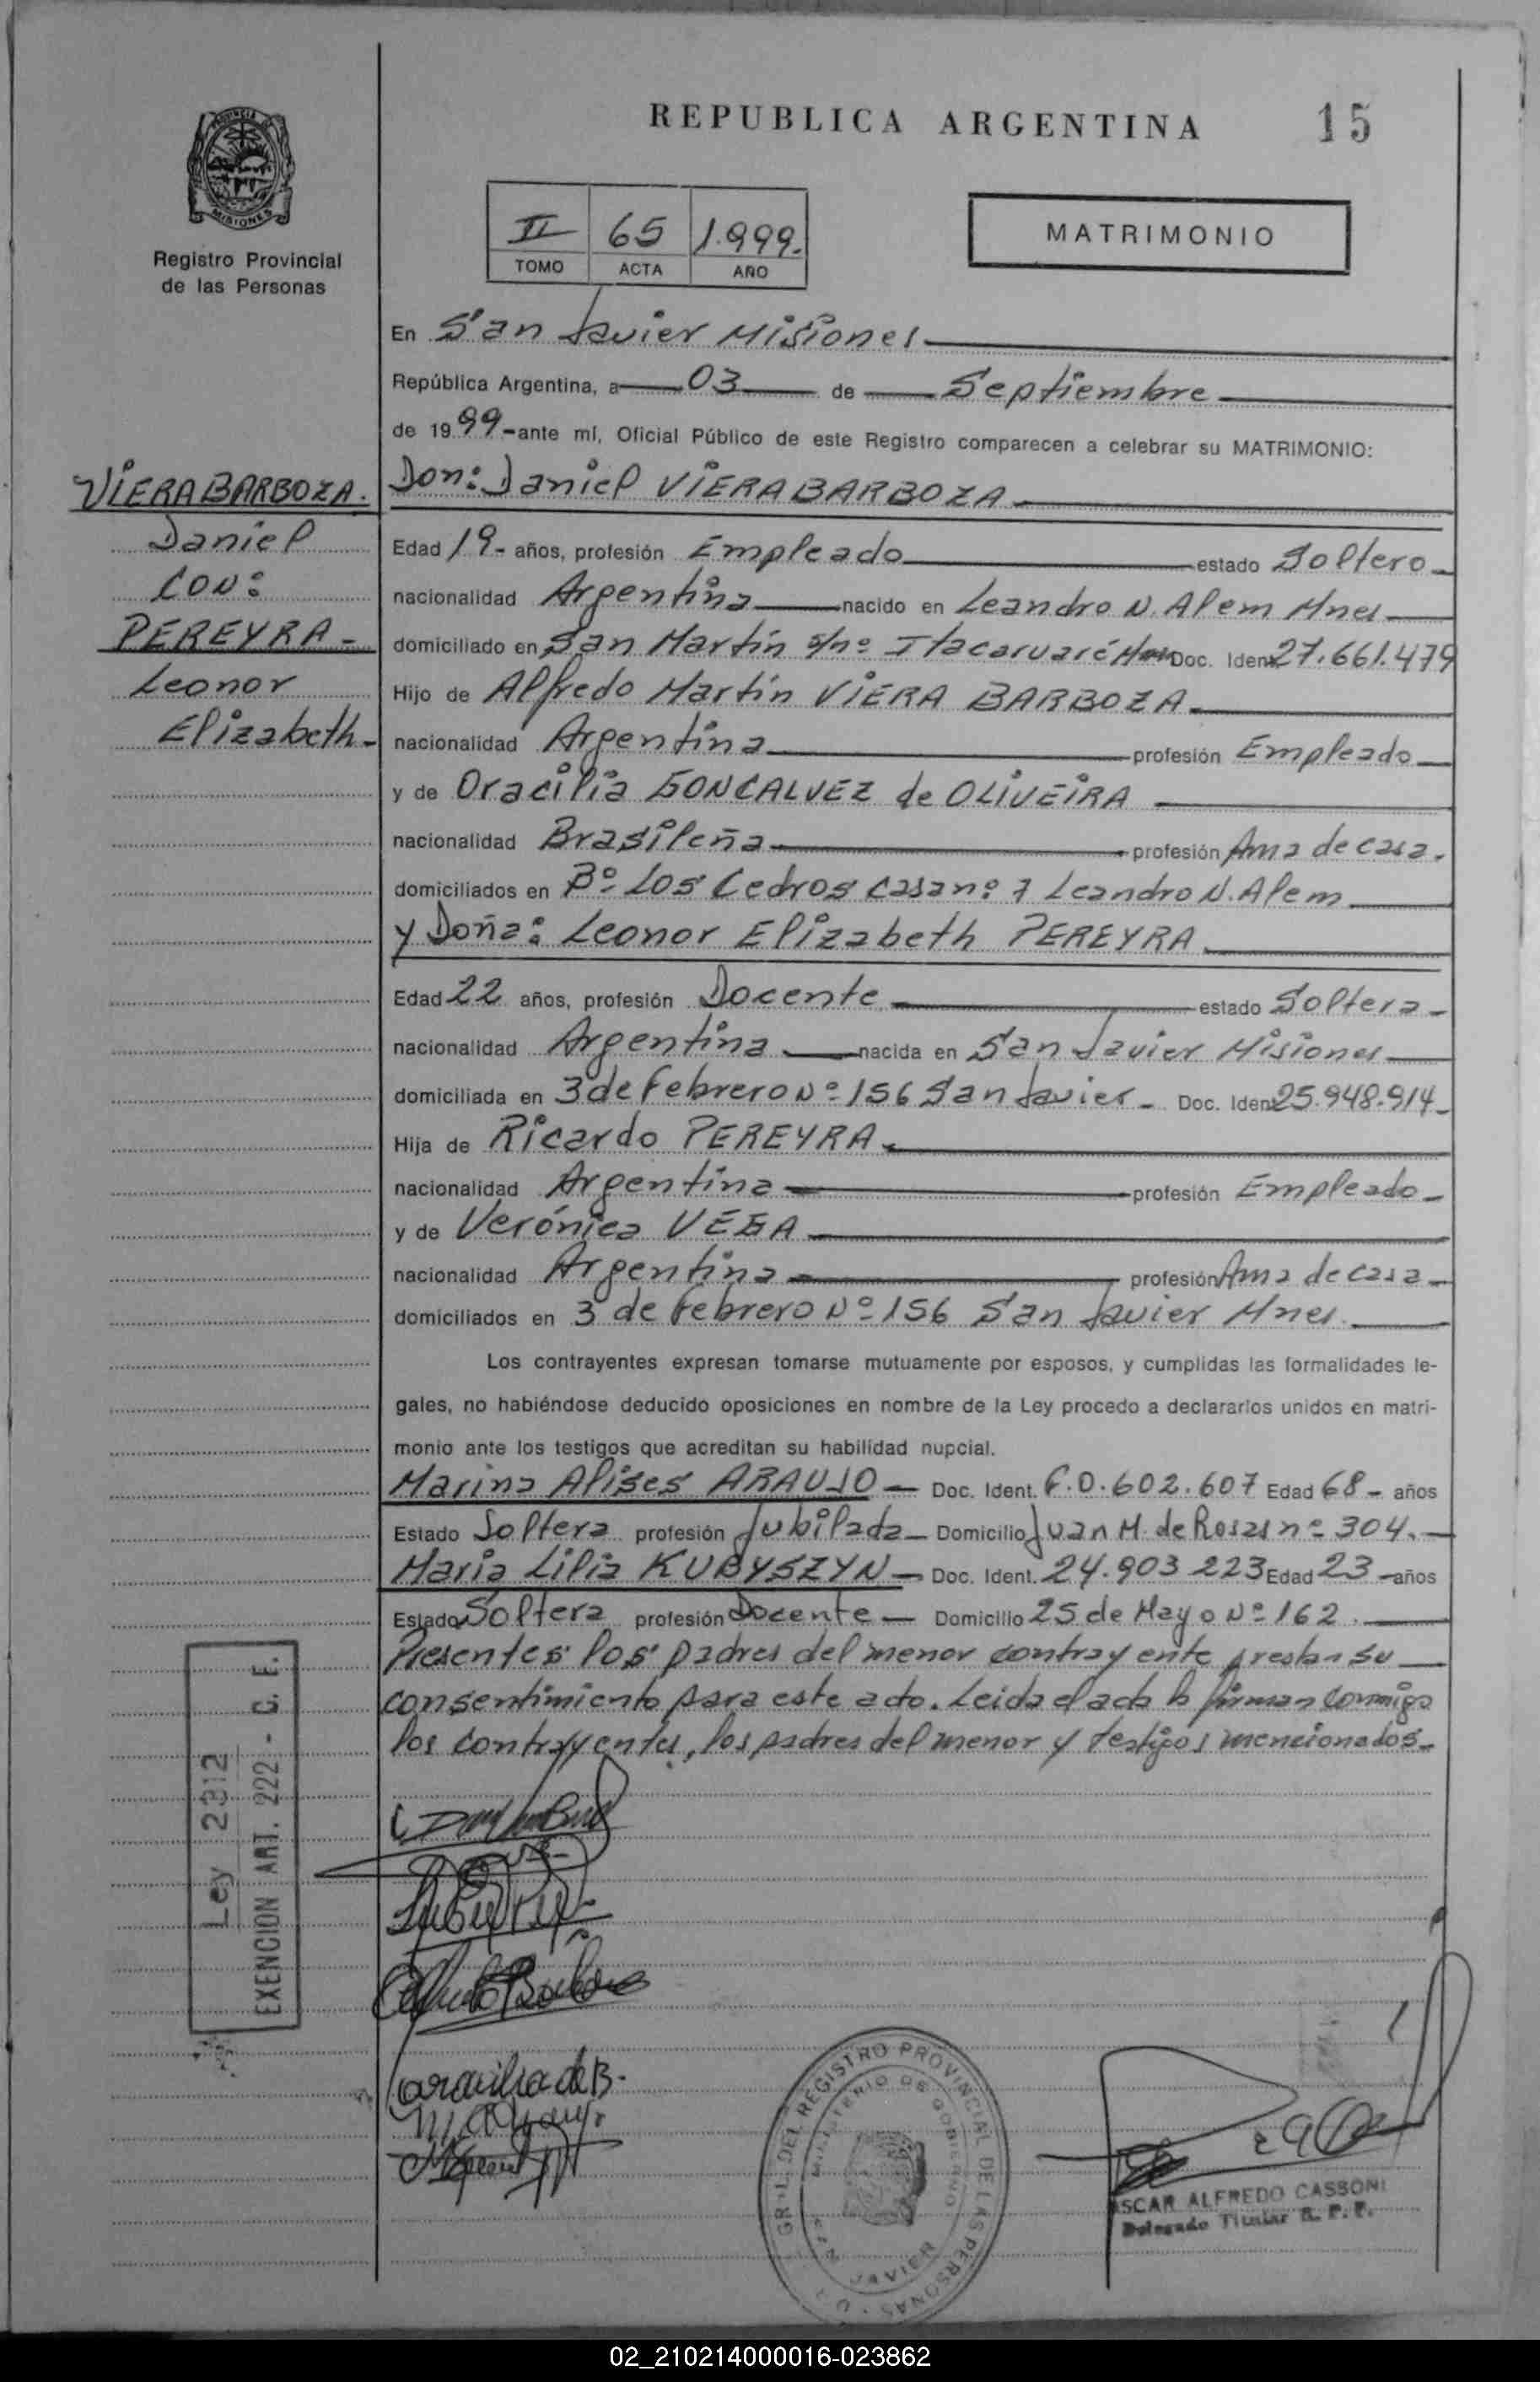 REPUBLICA ARGENTINA
15
PROVINCIA DE
MISIONES
Registro Provincial
de las Personas
II 65 1.999.
TOMO ACTA AÑO
MATRIMONIO
En San Javier Misiones
República Argentina, a 03 de Septiembre
de 1999-ante mí, Oficial Público de este Registro comparecen a celebrar su MATRIMONIO:
VIERA BARBOZA.
Daniel
CON:
PEREYRA-
Leonor
Elizabeth-
Don: Daniel VIERA BARBOZA
Edad 19- años, profesión Empleado estado Soltero
nacionalidad Argentina nacido en Leandro N. Alem Mnes
domiciliado en San Martín s/nº Itacaruaré Doc. Ident 27.661.479
Hijo de Alfredo Martín VIERA BARBOZA
nacionalidad Argentina profesión Empleado
y de Oracilia GONCALVEZ de OLIVEIRA
nacionalidad Brasileña profesión Ama de casa.
domiciliados en Bº Los Cedros casa nº 7 Leandro N. Alem
y Doña: Leonor Elizabeth PEREYRA
Edad 22 años, profesión Docente estado Soltera
nacionalidad Argentina nacida en San Javier Misiones
domiciliada en 3 de Febrero Nº 156 San Javier- Doc. Ident 25.948.914-
Hija de Ricardo PEREYRA
nacionalidad Argentina profesión Empleado
y de Verónica VEGA
nacionalidad Argentina profesión Ama de casa
domiciliados en 3 de Febrero Nº 156 San Javier Mnes.
Los contrayentes expresan tomarse mutuamente por esposos, y cumplidas las formalidades le-
gales, no habiéndose deducido oposiciones en nombre de la Ley procedo a declararlos unidos en matri-
monio ante los testigos que acreditan su habilidad nupcial.
Marina Alises ARAUJO- Doc. Ident. F.0.602.607 Edad 68- años
Estado Soltera profesión Jubilada- Domicilio Juan M. de Rosas nº 304.
Maria Lilia KUBYSZYN- Doc. Ident. 24.903 223 Edad 23-años
Estado Soltera profesión Docente- Domicilio 25 de Mayo Nº 162.
Presentes los padres del menor contrayente prestan su
consentimiento para este acto. Leida el acta la firman conmigo
los contrayentes, los padres del menor y testigos mencionados-
Ley 2312
EXENCION ART. 222 - C. F.
DEL REGISTRO PROVINCIAL DE LAS PERSONAS
MINISTERIO DE GOBIERNO
JAVIER
OSCAR ALFREDO CASSONI
Delegado Titular R. P. P.
02_210214000016-023862